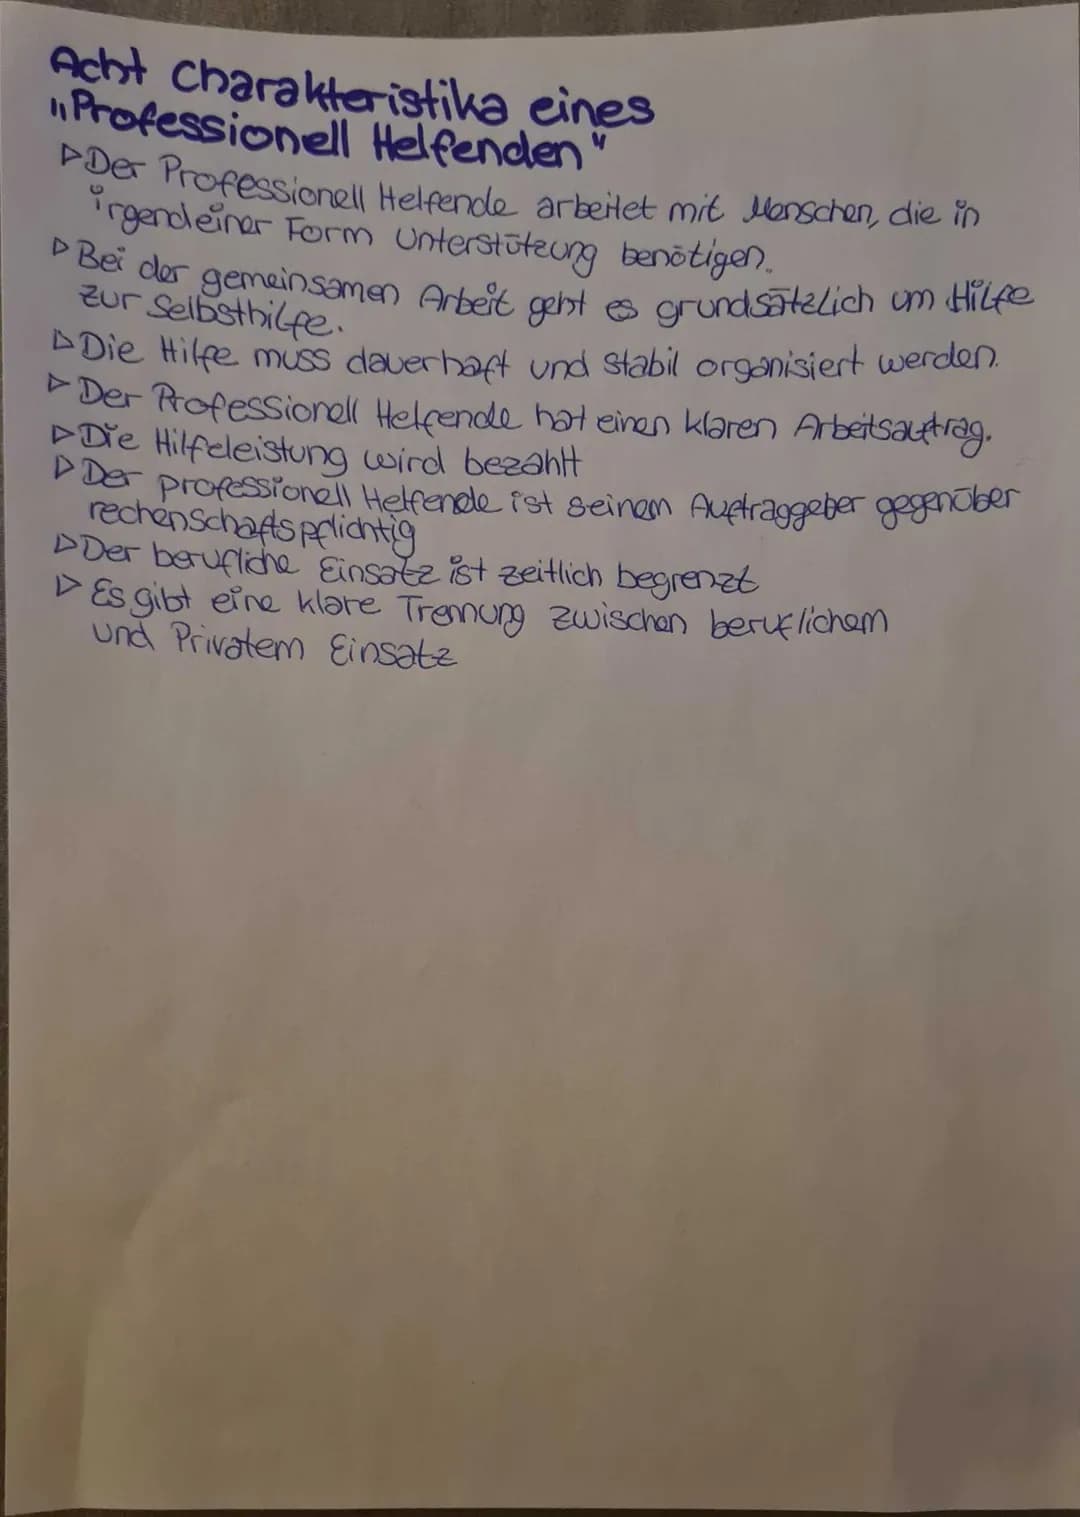 Acht Charakteristika eines
„Professionell Helfenden"
▷Der Professionell Helfende arbeitet mit Menschen, die in
irgendeiner Form Unterstützung benötigen.
▷Bei der gemeinsamen Arbeit geht es grundsätzlich um Hilfe
zur Selbsthilfe.
▷Die Hilfe muss dauerhaft und stabil organisiert werden.
▷Der Professionell Helfende hat einen klaren Arbeitsauftrag.
▷Die Hilfeleistung wird bezahlt
▷Der professionell Helfende ist seinem Auftraggeber gegenüber
rechenschaftspflichtig
▷Der berufliche Einsatz ist zeitlich begrenzt
▷Es gibt eine klare Trennung zwischen beruflichem
und Privatem Einsatz